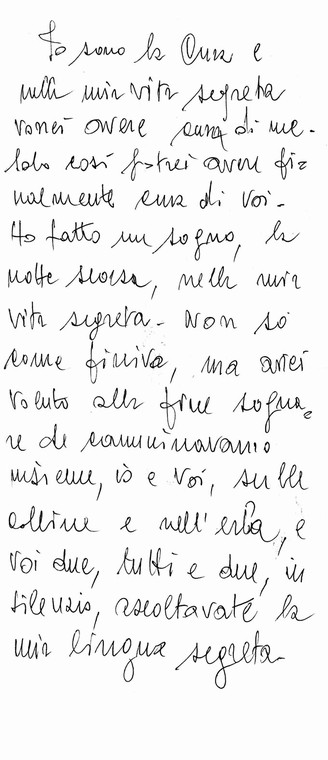 Io sono la Cura e
nella mia vita segreta
vorrei avere cura di me.
Solo così potrei avere fi=
nalmente cura di voi.
Ho fatto un sogno, la
notte scorsa, nella mia
vita segreta. Non so
come finiva, ma avrei
voluto alla fine sogna=
re che camminavamo
insieme, io e voi, sulle
colline e nell'erba, e
voi due, tutti e due, in
silenzio, ascoltavate la
mia lingua segreta.